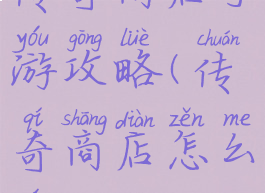 yóu gōng lüè chuán
游攻略(传
qí shāng diàn zěn me
奇商店怎么